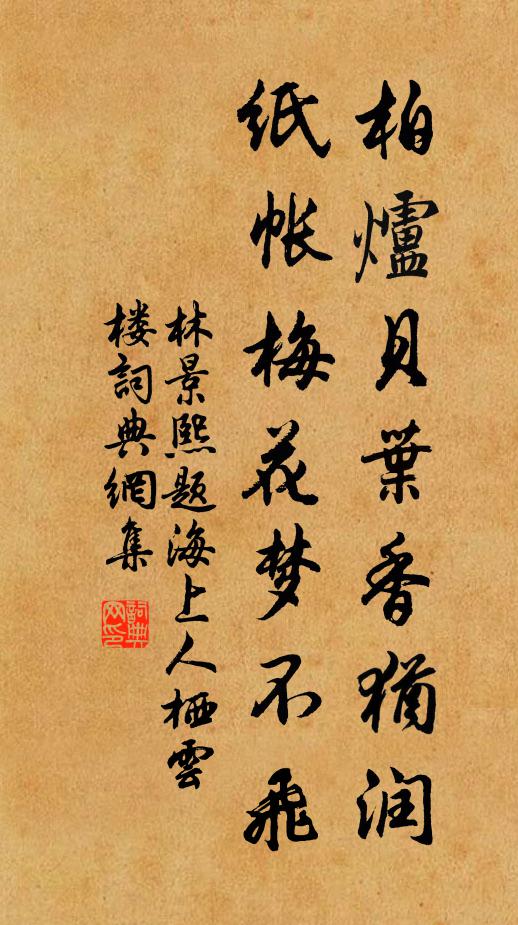 柏爐貝葉香猶润
纸帐梅花梦不飛
林景熙题海上人栖雲
楼詞典網集
詞典
网印